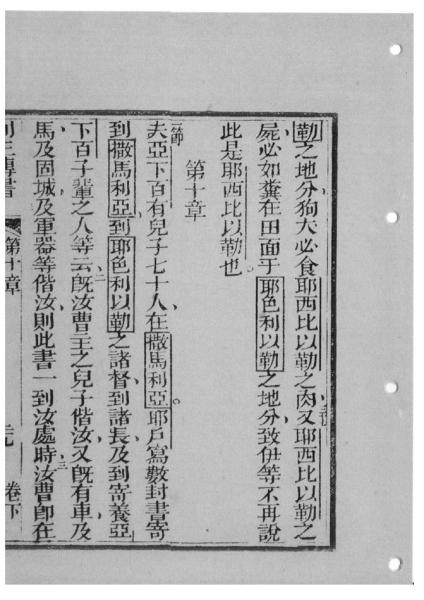 勒之地分狗犬必食耶西比以勒之肉又耶西比以勒之
屍必如糞在田面于耶色利以勒之地分致伊等不再說
此是耶西比以勒也
第十章
一節夫亞下百有兒子七十人在撒馬利亞耶戶寫數封書寄
到撒馬利亞到耶色利以勒之諸督到諸長及到寄養亞
下百子輩之人等云二旣汝曹王之兒子偕汝又旣有車及
馬及固城及軍器等偕汝則此書一到汝處時三汝曹卽在
列王傳書 第十章 卷下